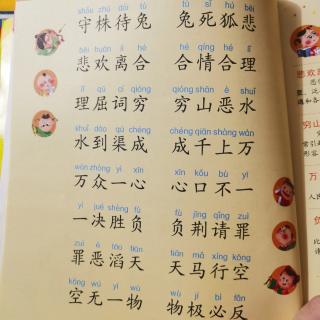 shǒu zhū dài tù  tù sǐ hú bēi
守株待兔  兔死狐悲
bēi huān lí hé  hé qíng hé lǐ
悲欢离合  合情合理
lǐ qū cí qióng  qióng shān è shuǐ
理屈词穷  穷山恶水
shuǐ dào qú chéng  chéng qiān shàng wàn
水到渠成  成千上万
wàn zhòng yì xīn  xīn kǒu bù yī
万众一心  心口不一
yì jué shèng fù  fù jīng qǐng zuì
一决胜负  负荆请罪
zuì è tāo tiān  tiān mǎ xíng kōng
罪恶滔天  天马行空
kōng wú yí wù  wù jí bì fǎn
空无一物  物极必反
悲欢
穷山
万